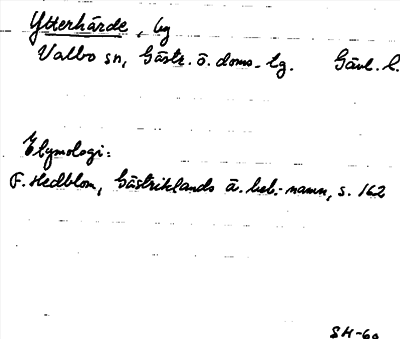 Ytterhärde, by
Valbo sn, Gästr. ö. doms. lg. Gävl. l.
Etymologi:
F. Hedblom, Gästriklands ä. beb.-namn, s. 162
SH-60